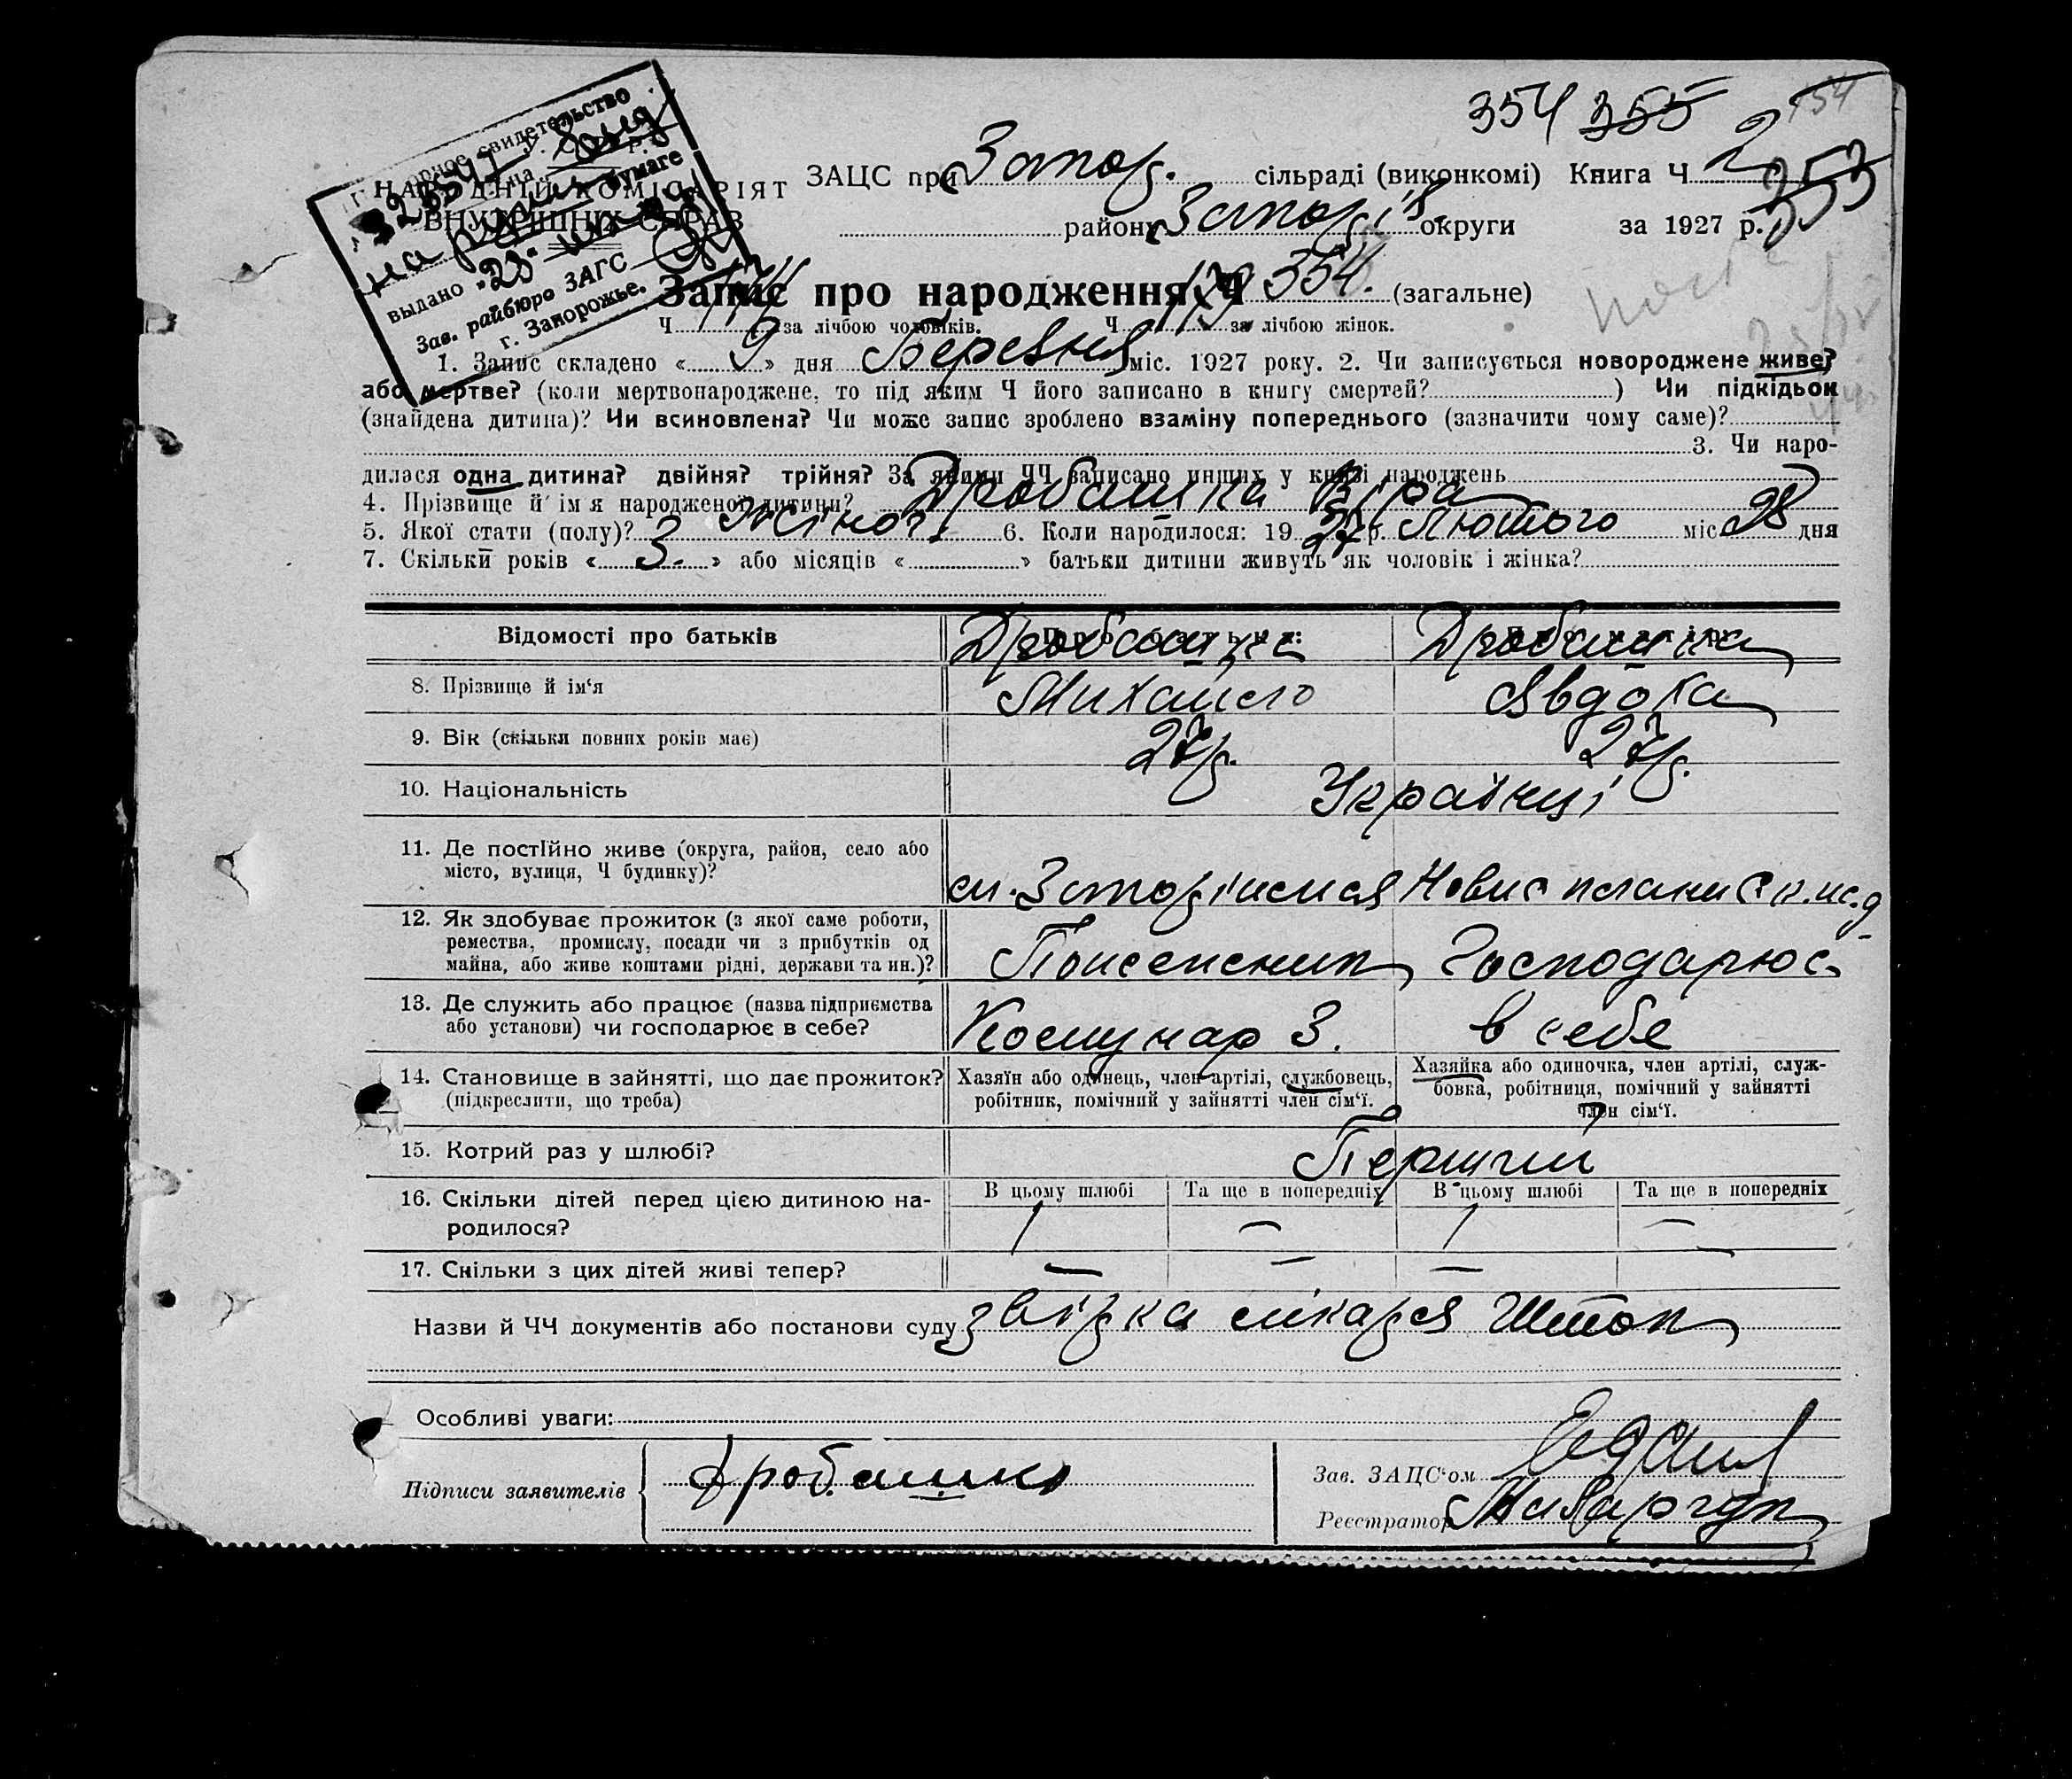 354 355 154
ЗАЦС при Запор. сільраді (виконкомі) Книга Ч 2
353
НАРОДНІЙ КОМІСАРІЯТ
ВНУТРІШНІХ СПРАВ
району Запоріз. округи за 1927 р.
свидетельство
бумаге
выдано "23"
Зав. райбюро ЗАГС
г. Запорожье.
Запис про народження Ч 354. (загальне)
Ч. за лічбою чоловіків. Ч. 179 за лічбою жінок.
1. Запис складено « 9 » дня Березня міс. 1927 року. 2. Чи записується новороджене живе?
або мертве? (коли мертвонароджене, то під яким Ч його записано в книгу смертей? ) Чи підкідьок
(знайдена дитина)? Чи всиновлена? Чи може запис зроблено взаміну попереднього (зазначити чому саме)?
3. Чи наро-
дилася одна дитина? двійня? трійня? За якими ЧЧ записано инших у книзі народжень
4. Прізвище й ім'я народженої дитини? Дробашка Віра
5. Якої стати (полу)? Жіночі 6. Коли народилося: 19 27 р. Лютого міс 28 дня
7. Скільки років « 3. » або місяців « » батьки дитини живуть як чоловік і жінка?
Відомості про батьків Дробашка Дробашка
8. Прізвище й ім'я Михайло Явдоха
9. Вік (скільки повних років має) 27 р. 27 р.
10. Національність Українці
11. Де постійно живе (округа, район, село або
місто, вулиця, Ч будинку)? Нові плани
12. Як здобуває прожиток (з якої саме роботи,
ремества, промислу, посади чи з прибутків од
майна, або живе коштами рідні, держави та ин.)? Господарює
13. Де служить або працює (назва підприємства
або установи) чи господарює в себе? Комунар З. в себе
14. Становище в зайнятті, що дає прожиток?
(підкреслити, що треба)
Хазяїн або одинець, член артілі, службовець,
робітник, помічний у зайнятті член сім'ї.
Хазяйка або одиночка, член артілі, служ-
бовка, робітниця, помічний у зайнятті
член сім'ї.
15. Котрий раз у шлюбі? Перший
16. Скільки дітей перед цією дитиною на-
родилося?
В цьому шлюбі Та ще в попередніх В цьому шлюбі Та ще в попередніх
1 — 1 —
17. Скільки з цих дітей живі тепер? — — — —
Назви й ЧЧ документів або постанови суду звірка лікаря Штоп
Особливі уваги:
Підписи заявителів Дробашка
Зав. ЗАЦС'ом
Реєстратор